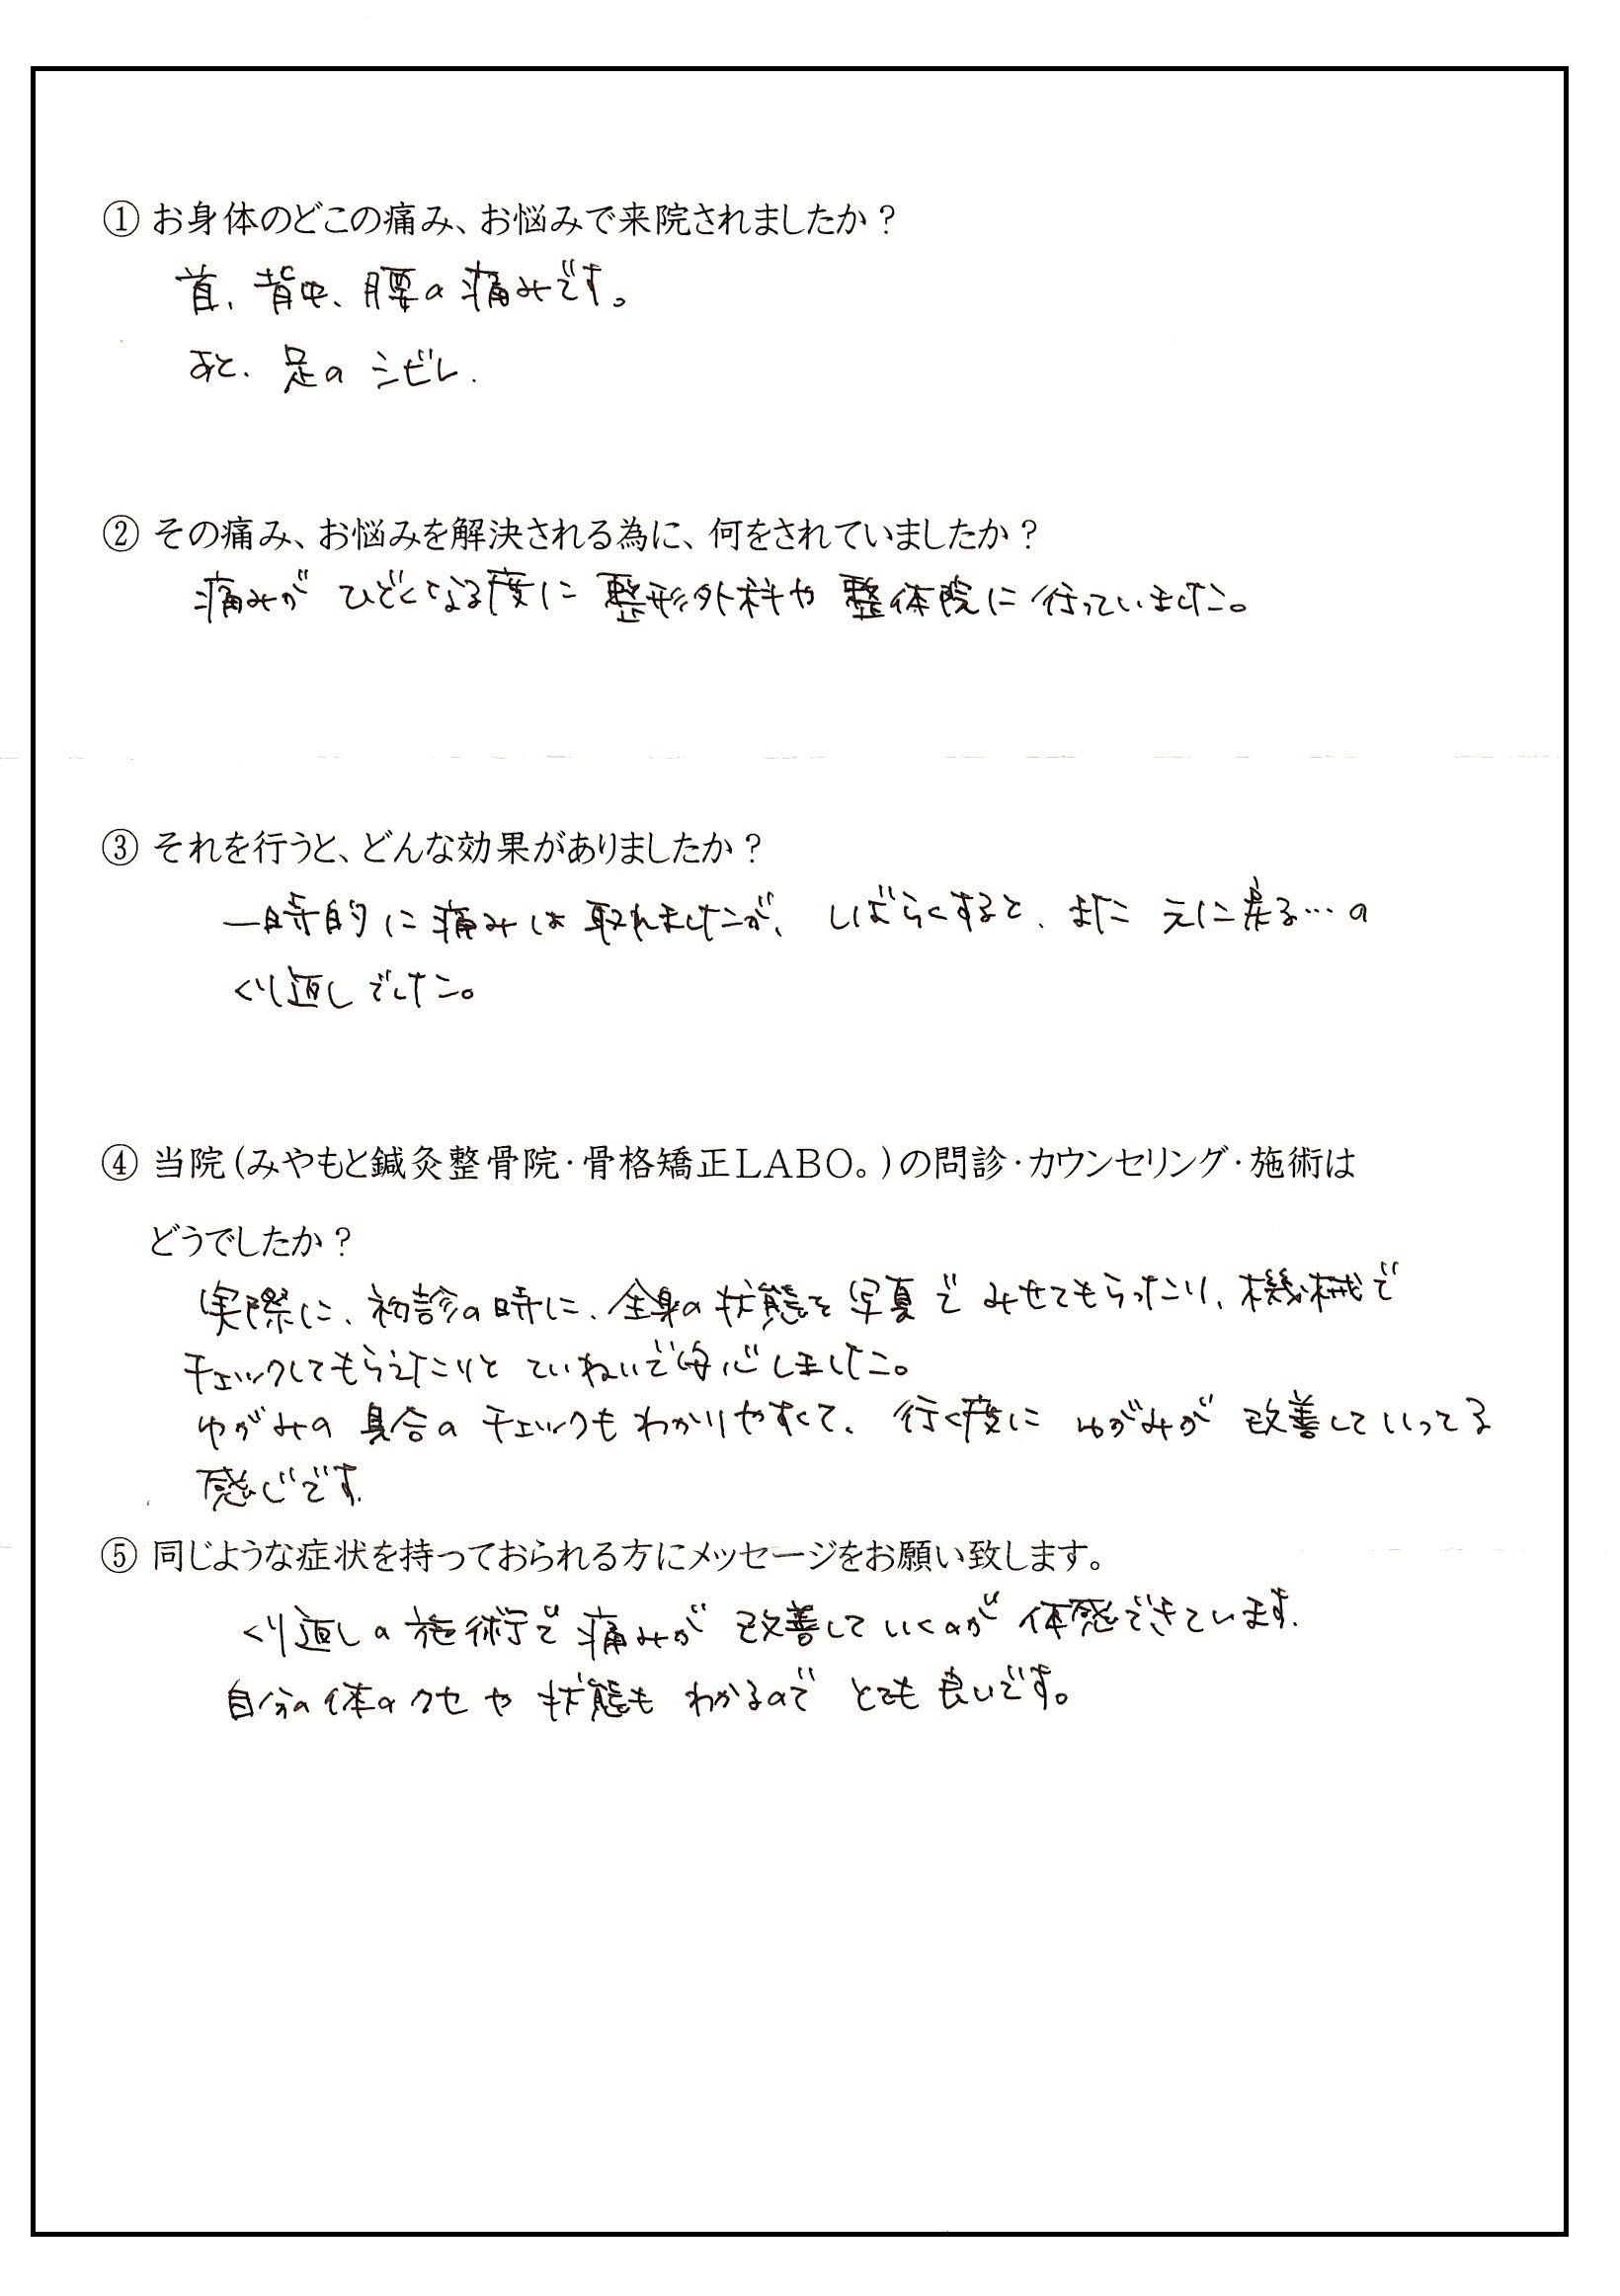 ① お身体のどこの痛み、お悩みで来院されましたか？
首、背中、腰の痛みです。
あと、足の シビレ．
② その痛み、お悩みを解決される為に、何をされていましたか？
痛みが ひどくなる度に 整形外科や 整体院に行っていました。
③ それを行うと、どんな効果がありましたか？
一時的に痛みは取れましたが、しばらくすると、また 元に戻る…の
くり返しでした。
④ 当院（みやもと鍼灸整骨院・骨格矯正LABO。）の問診・カウンセリング・施術は
どうでしたか？
実際に、初診の時に、全身の状態を写真で みせてもらったり、機械で
チェックしてもらえたりと ていねいで安心しました。
ゆがみの 具合の チェックも わかりやすくて、行く度に ゆがみが 改善していってる
感じです.
⑤ 同じような症状を持っておられる方にメッセージをお願い致します。
くり返しの施術で痛みが 改善していくのが 体感できています.
自分の体のクセや 状態も わかるので とても良いです。